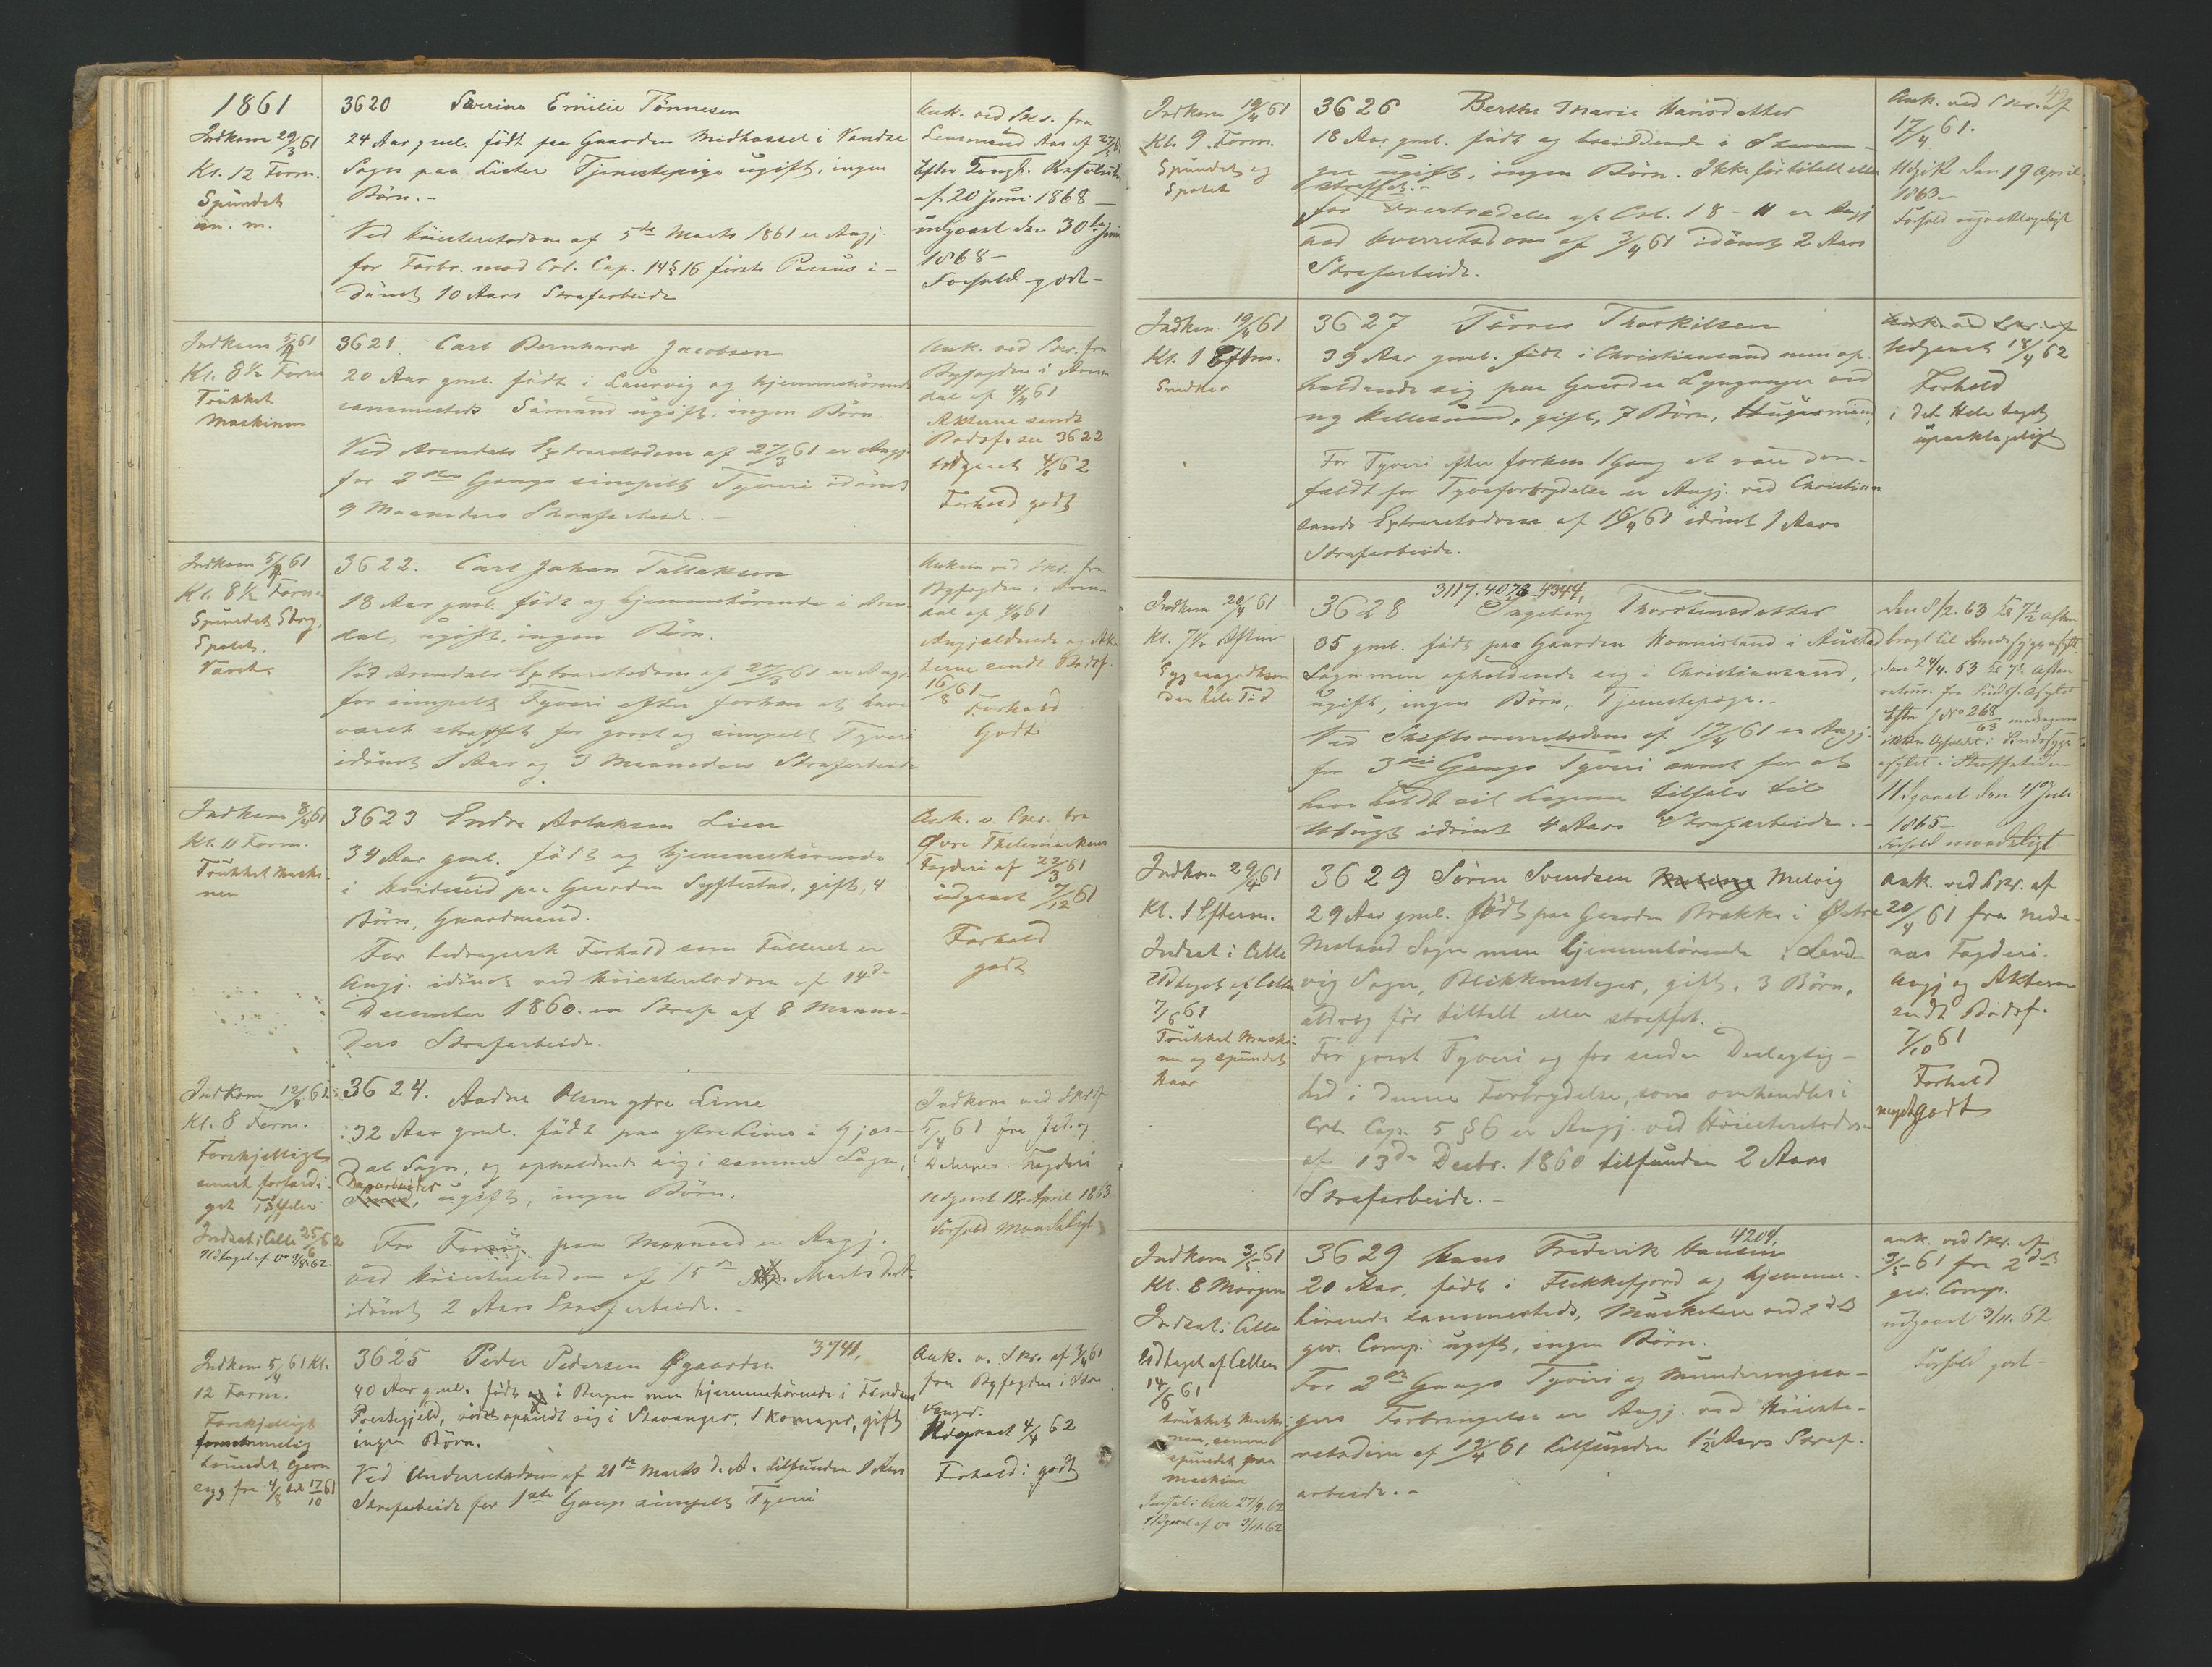 1861
Indkom 29/3 61
Kl. 12 Form.
Spundet
m. m.
3620 Severine Emilie Tönnesen
24 Aar gml. født paa Gaarden Midhassel i Vandse
Sogn paa Lister Tjenestepige ugift, ingen
Börn. -
Ved Höiesteretsdom af 5te Marts 1861 er Angj.
for Forbr. mod Crl. Cap. 14 § 16 förste Passus i-
dömt 10 Aars Strafarbeide
Ank. ved Skr. fra
Lensmand Aas af 27/3 61
Efter Kongl. Resolution
af 20 Juni 1868 -
udgaaet den 30te Juni
1868 -
Forhold godt -
Indkom 5/4 61
Kl. 8 1/2 Form
Trukket
Maskinen
3621. Carl Bernhard Jacobsen
20 Aar gml. født i Laurvig og hjemmehörende
sammesteds Sömand ugift, ingen Börn.
Ved Arendals Extraretsdom af 27/3 61 er Angj.
for 2den Gangs simpelt Tyveri idömt
9 Maaneders Strafarbeide. -
Ank. ved Skr. fra
Byfogden i Aren
dal af 4/4 61
Akterne sendt
Bodsf. see 3622
Udgaaet 4/1 62
Forhold godt
Indkom 5/4 61
Kl. 8 1/2 Form.
Spundet Strg,
Spolet.
Vævet.
3622. Carl Johan Tallaksen
18 Aar gml. født og hjemmehörende i Aren
dal, ugift, ingen Börn.
Ved Arendals Extraretsdom af 27/3 61 er Angj.
for simpelt Tyveri efter forhen at have
været straffet for grovt og simpelt Tyveri
idömt 1 Aar og 3 Maaneders Strafarbeide
Ankom ved Skr. fra
Byfogden i Aren
dal af 4/4 61
Angjældende og Ak-
terne sendt Bodsf.
16/8 61
Forhold
Godt
Indkom 8/4 61
Kl. 11 Form.
Trukket Maski-
nen
3623 Endre Aslaksen Lien
34 Aar gml. født og hjemmehörende
i Hvideseid paa Gaarden Syftestad, gift, 4
Börn, Gaardmand.
For bedragersk Forhold som Falleret er
Angj. idömt ved Höiesteretsdom af 14de
December 1860. en Straf af 8 Maane-
ders Strafarbeide.
Ank. v. Skr. fra
Øvre Thelemarkens
Fogderi af 22/3 61
udgaaet 7/12 61
Forhold
godt
Indkom 12/4 61
Kl. 8 Form.
Forskjelligt
samt forfærdi-
get Töffeler
Indsat i Celle 25/6 62
Udtaget af do 9/8. 62.
3624. Andres Olsen ytre Lime
32 Aar gml. født paa ytre Lime i Gjes-
dal Sogn, og opholdende sig i samme Sogn,
Dagarbeider
ugift, ingen Börn.
For Forsög paa Meened er Angj.
ved Höiesteretsdom af 15de Marts d. A.
idömt 2 Aars Strafarbeide. -
Indkom ved Skr. af
5/4 61 fra Jed. og
Dalernes Fogderi
Udgaaet 12 April 1863
Forhold Maadeligt
Indkom 5/4 61 Kl.
12 Form.
Forskjelligt
fornemmelig
tvundet Garn
syg fra 4/8 til 17/10 61
3625 Peder Pedersen Øgaarden 3741,
40 Aar gml. født i Bergen men hjemmehörende i Förde
Præstegjeld, sidst opholdt sig i Stavanger, Skomager, gift
ingen Börn.
Ved Underretsdom af 21de Marts d. A. tilfunden 1 Aars
Strafarbeide for 1ste Gangs simpelt Tyveri
Ank. v. Skr. af 3/4 61
fra Byfogden i Sta
vanger.
Udgaaet 4/4 62
Forhold: godt
42
Indkom 19/4 61
Kl. 9 Form.
Spundet og
Spolet
3626 Berthe Marie Hansdatter
18 Aar gml. født og boesiddende i Stavan-
ger ugift, ingen Börn. Ikke för tiltalt eller
straffet. -
for Overtrædelse af Crl. 18 - 11 er Angj
ved Overretsdom af 3/4 61 idömt 2 Aars
Strafarbeide.
Ank. ved Skr. af
17/4 61.
Udgik den 19 April
1863 -
Forhold upaaklageligt
Indkom 19/4 61
Kl. 1 Eftm.
Snedker
3627 Törres Thorkilsen
39 Aar gml. født i Christianssand men op-
holdende sig paa Gaarden Lyngøen ved
ny Hellesund, gift, 7 Börn, Huusmand,
For Tyveri efter forhen 1 Gang at være dom-
fældt for Tyvsforbrydelse er Angj. ved Christian
sands Extraretsdom af 16/4 61 idömt 1 Aars
Strafarbeide.
Ank. ved Skr. af
Udgaaet 18/4 62
Forhold
i det Hele taget
upaaklageligt
Indkom 20/4 61
Kl. 7 1/2 Aften
Sygevogterkone
den hele Tid
3117. 4073 4344,
3628 Ingeborg Thorstensdatter
35 gml. født paa Gaarden Konnisland i Austad
Sogn men opholdende sig i Christianssand,
ugift, ingen Börn, Tjenestepige. -
Ved Stiftsoverretsdom af 17/4 61 er Angj.
for 3die Gangs Tyveri samt for at
have holdt sit Legeme tilfals til
Utugt idömt 4 Aars Strafarbeide. -
Den 8/2. 63 Kl 7 1/2 Aften
bragt til Sindssygeasylet.
Den 24/4. 63 Kl 7 1/2 Aften
retour. fra Sinds. Asylet
Efter J No 268/63 medregnes
ikke Opholdet i Sindssyge
asylet i Straffetiden
Udgaaet den 4de Juli
1865 -
Forhold maadeligt
Indkom 29/4 61
Kl. 1 Efterm.
Indsat i Celle
Udtaget af Cellen
7/6 61
Trukket Maski-
nen og spundet
Haar
3629 Sören Svendsen Melvig
29 Aar gml. født paa Gaarden Brække i Østre
Moland Sogn men hjemmehörende i Land-
vig Sogn, Blikkenslager, gift, 3 Börn,
aldrig för tiltalt eller straffet.
For grovt Tyveri og for senden Deelagtig-
hed i denne Forbrydelse, som omhandles i
Crl. Cap. 5 § 6 er Angj. ved Höiesteretsdom
af 13de Decbr. 1860 tilfunden 2 Aars
Strafarbeide. -
Ank. ved Skr. af
20/4 61 fra Nede-
næs Fogderi.
Angj og Akterne
sendt Bodsf.
7/10 61
Forhold
meget godt
Indkom 3/5 61
Kl. 8 Morgen
Indsat i Celle
Udtaget af Cellen
14/6 61
trukket Maski-
nen, senere
spundet paa
maskine
Indsat i Celle 27/9. 62
Udgaaet af do 3/11. 62
4204,
3629 Hans Frederik Hansen
20 Aar, født i Flekkefjord og hjemme-
hörende sammesteds, Musketeer ved 2det
gev. Comp. ugift, ingen Börn.
For 2de Gangs Tyveri og Munderingssa-
gers Forbringelse er Angj. ved Höieste-
retsdom af 19/4 61 tilfunden 1 1/2 Aars Straf-
arbeide. -
ank. ved Skr. af
3/5 61 fra 2det
gev. Comp.
udgaaet 3/11. 62
Forhold godt -